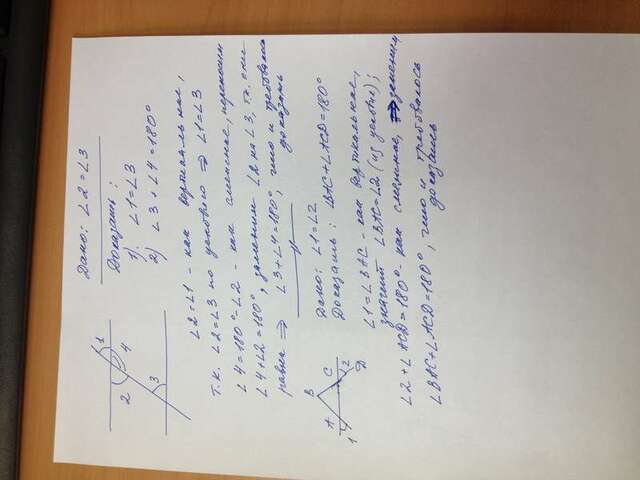 Дано: ∠2=∠3
Доказать:
1) ∠1=∠3
2) ∠3+∠4=180°
1
2
4
3
∠2=∠1 - как вертикальные,
т.к. ∠2=∠3 по условию ⇒ ∠1=∠3
∠4=180°-∠2 - как смежные, переносим
∠4+∠2=180°, заменим ∠2 на ∠3, т.к. они
равны ⇒ ∠3+∠4=180°, что и требовалось
доказать
Дано: ∠1=∠2
Доказать: ∠BAC+∠ACD=180°
B
A
C
1
2
D
∠1=∠BAC - как вертикальные,
значит ∠BAC=∠2 (из условие);
∠2+∠ACD=180° - как смежные, заменим
∠BAC+∠ACD=180°, что и требовалось
доказать